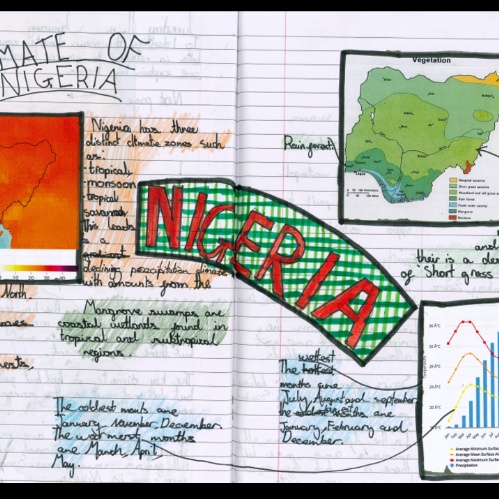 MATE OF
NIGERIA
Nigeria has three
distinct climate zones such
as:
-tropical
-monsoon
tropical
savannah
This leads
to a
gradient
declining precipitation climate
with amounts from the
North.
Mangrove swamps are
coastal wetlands found in
tropical and subtropical
regions.
The coldest months are
January, November, December.
The warmest months
are March, April
May.
NIGERIA
Vegetation
Rainforest
Marginal savanna
Short grass savanna
Rain forest
Fresh water swamp
Mangrove
Montane
and
their is a
of 'Short grass
wettest
The hottest
months are
July, August and september
the months are
January, February and
December.
Average Minimum Surf
Average Mean Surface Ai
Average Maximum Surfac
Precipitation